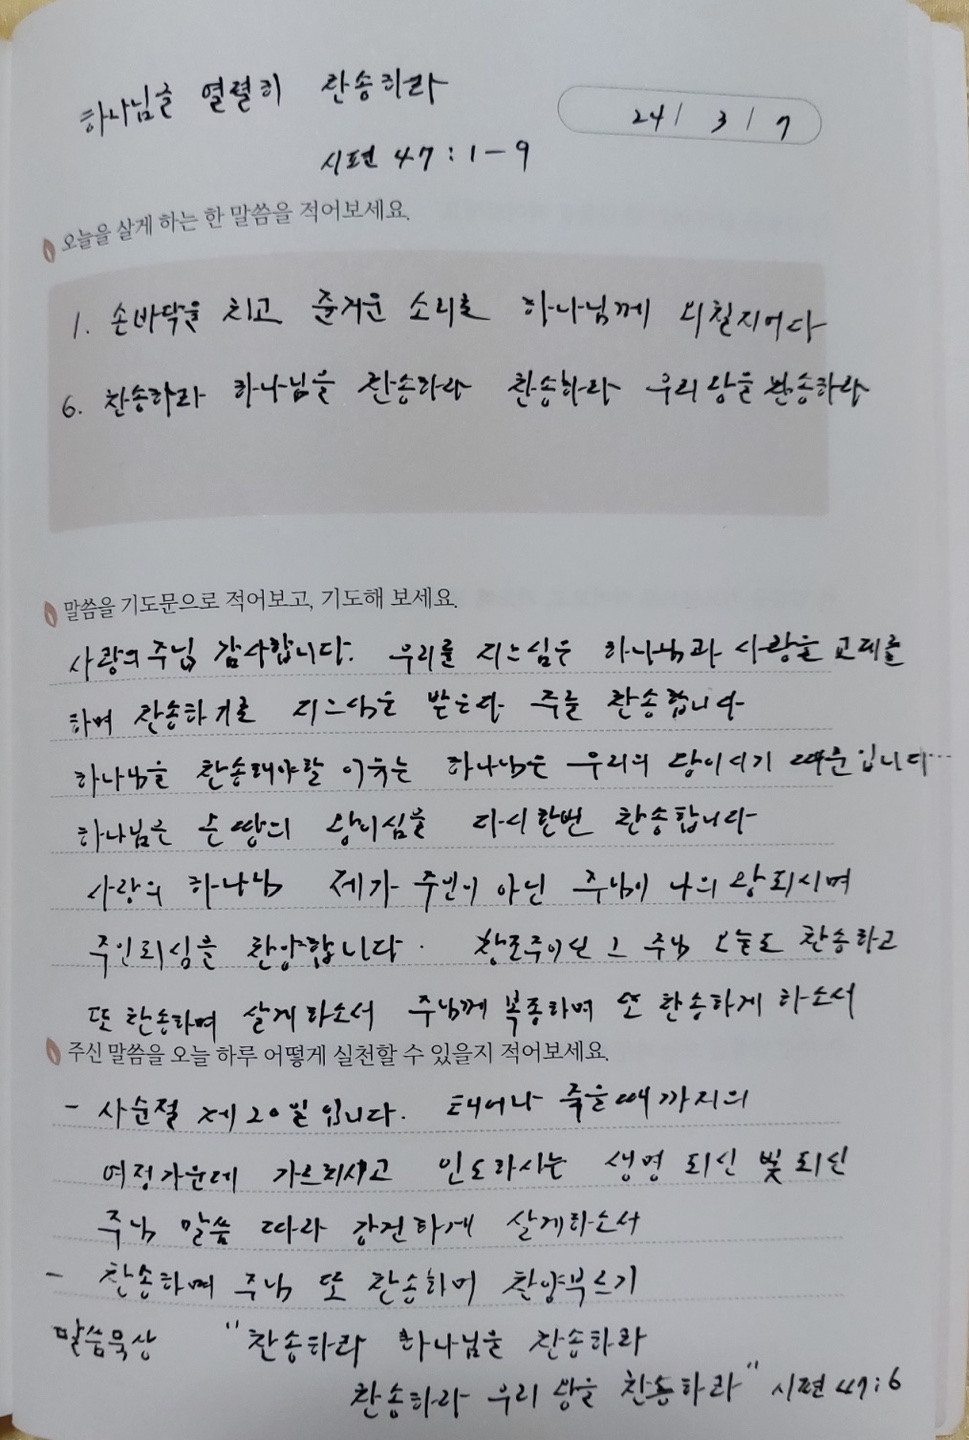 하나님을 열렬히 찬송하라
24 / 3 / 7
시편 47 : 1 - 9
오늘을 살게 하는 한 말씀을 적어보세요.
1. 손바닥을 치고 즐거운 소리로 하나님께 외칠지어다
6. 찬송하라 하나님을 찬송하라 찬송하라 우리 왕을 찬송하라
말씀을 기도문으로 적어보고, 기도해 보세요.
사랑의 주님 감사합니다. 우리를 지으심은 하나님과 사랑을 교제를
하며 찬송하기로 지으심을 받은 주를 찬송합니다
하나님을 찬송해야할 이유는 하나님은 우리의 왕이시기 때문입니다...
하나님은 온 땅의 왕이심을 다시한번 찬송합니다
사랑의 하나님 제가 주인이 아닌 주님이 나의 왕되시며
주인되심을 찬양합니다. 창조주이신 그 주님 오늘도 찬송하고
또 찬송하며 살게하소서 주님께 복종하며 또 찬송하게 하소서
주신 말씀을 오늘 하루 어떻게 실천할 수 있을지 적어보세요.
- 사순절 제 20일입니다. 태어나 죽을때까지의
여정가운데 가르치시고 인도하시는 생명 되신 빛 되신
주님 말씀 따라 강건하게 살게하소서
- 찬송하며 주님 또 찬송하며 찬양부르기
말씀묵상 "찬송하라 하나님을 찬송하라
찬송하라 우리 왕을 찬송하라" 시편 47:6